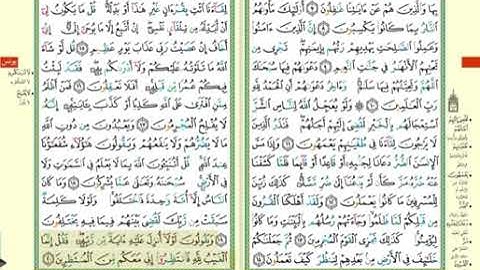 بِهَا وَالَّذِينَ هُمْ عَنْ ءَايَٰتِنَا غَٰفِلُونَ ٧ أُوْلَٰٓئِكَ مَأْوَىٰهُمُ
النَّارُ بِمَا كَانُوا۟ يَكْسِبُونَ ٨ إِنَّ الَّذِينَ ءَامَنُوا۟
وَعَمِلُوا۟ الصَّٰلِحَٰتِ يَهْدِيهِمْ رَبُّهُم بِإِيمَٰنِهِمْ تَجْرِى مِن
تَحْتِهِمُ الْأَنْهَٰرُ فِى جَنَّٰتِ النَّعِيمِ ٩ دَعْوَىٰهُمْ فِيهَا
سُبْحَٰنَكَ اللَّهُمَّ وَتَحِيَّتُهُمْ فِيهَا سَلَٰمٌ وَءَاخِرُ دَعْوَىٰهُمْ أَنِ الْحَمْدُ لِلَّهِ
رَبِّ الْعَٰلَمِينَ ١٠ وَلَوْ يُعَجِّلُ اللَّهُ لِلنَّاسِ الشَّرَّ
اسْتِعْجَالَهُم بِالْخَيْرِ لَقُضِىَ إِلَيْهِمْ أَجَلُهُمْ فَنَذَرُ الَّذِينَ
لَا يَرْجُونَ لِقَآءَنَا فِى طُغْيَٰنِهِمْ يَعْمَهُونَ ١١ وَإِذَا مَسَّ
الْإِنسَٰنَ الضُّرُّ دَعَانَا لِجَنۢبِهِ أَوْ قَاعِدًا أَوْ قَآئِمًا فَلَمَّا كَشَفْنَا
عَنْهُ ضُرَّهُ مَرَّ كَأَن لَّمْ يَدْعُنَآ إِلَىٰ ضُرٍّ مَّسَّهُ كَذَٰلِكَ زُيِّنَ
لِلْمُسْرِفِينَ مَا كَانُوا۟ يَعْمَلُونَ ١٢ وَلَقَدْ أَهْلَكْنَا الْقُرُونَ
مِن قَبْلِكُمْ لَمَّا ظَلَمُوا۟ وَجَآءَتْهُمْ رُسُلُهُم بِالْبَيِّنَٰتِ وَمَا كَانُوا۟
لِيُؤْمِنُوا۟ كَذَٰلِكَ نَجْزِى الْقَوْمَ الْمُجْرِمِينَ ١٣ ثُمَّ جَعَلْنَٰكُمْ
خَلَٰٓئِفَ فِى الْأَرْضِ مِنۢ بَعْدِهِمْ لِنَنظُرَ كَيْفَ تَعْمَلُونَ ١٤
لِقَآءَنَا ائْتِ بِقُرْءَانٍ غَيْرِ هَٰذَآ أَوْ بَدِّلْهُ قُلْ مَا يَكُونُ لِىٓ
أَنْ أُبَدِّلَهُ مِن تِلْقَآئِ نَفْسِىٓ إِنْ أَتَّبِعُ إِلَّا مَا يُوحَىٰٓ إِلَىَّ إِنِّىٓ
أَخَافُ إِنْ عَصَيْتُ رَبِّى عَذَابَ يَوْمٍ عَظِيمٍ ١٥ قُل لَّوْ شَآءَ
اللَّهُ مَا تَلَوْتُهُ عَلَيْكُمْ وَلَآ أَدْرَىٰكُم بِهِ فَقَدْ لَبِثْتُ
فِيكُمْ عُمُرًا مِّن قَبْلِهِ أَفَلَا تَعْقِلُونَ ١٦ فَمَنْ أَظْلَمُ
مِمَّنِ افْتَرَىٰ عَلَى اللَّهِ كَذِبًا أَوْ كَذَّبَ بِـَٔايَٰتِهِ إِنَّهُ
لَا يُفْلِحُ الْمُجْرِمُونَ ١٧ وَيَعْبُدُونَ مِن دُونِ اللَّهِ
مَا لَا يَضُرُّهُمْ وَلَا يَنفَعُهُمْ وَيَقُولُونَ هَٰٓؤُلَآءِ شُفَعَٰٓؤُنَا
عِندَ اللَّهِ قُلْ أَتُنَبِّـُٔونَ اللَّهَ بِمَا لَا يَعْلَمُ فِى السَّمَٰوَٰتِ وَلَا
فِى الْأَرْضِ سُبْحَٰنَهُ وَتَعَٰلَىٰ عَمَّا يُشْرِكُونَ ١٨ وَمَا كَانَ
النَّاسُ إِلَّآ أُمَّةً وَٰحِدَةً فَاخْتَلَفُوا۟ وَلَوْلَا كَلِمَةٌ
سَبَقَتْ مِن رَّبِّكَ لَقُضِىَ بَيْنَهُمْ فِيمَا فِيهِ يَخْتَلِفُونَ
١٩ وَيَقُولُونَ لَوْلَآ أُنزِلَ عَلَيْهِ ءَايَةٌ مِّن رَّبِّهِ فَقُلْ إِنَّمَا
الْغَيْبُ لِلَّهِ فَانتَظِرُوٓا۟ إِنِّى مَعَكُم مِّنَ الْمُنتَظِرِينَ ٢٠
يونس